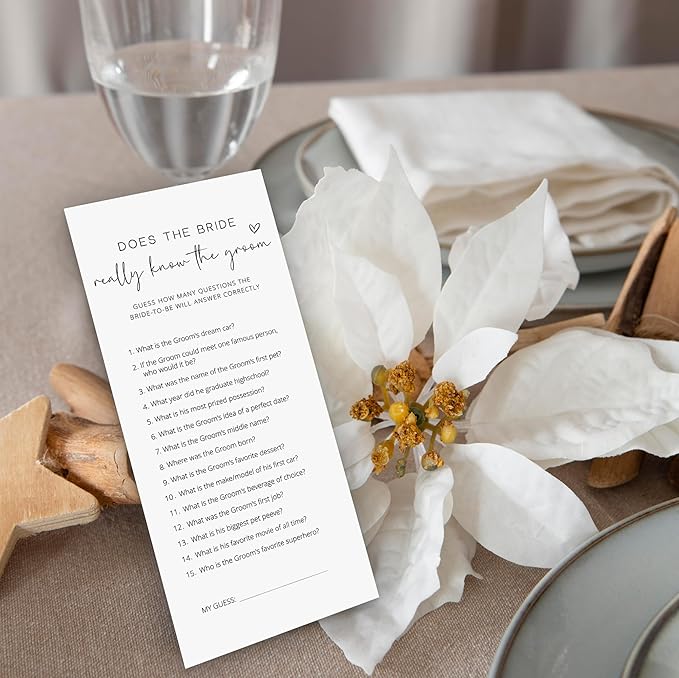 DOES THE BRIDE
really know the groom
GUESS HOW MANY QUESTIONS THE
BRIDE-TO-BE WILL ANSWER CORRECTLY
1. What is the Groom's dream car?
2. If the Groom could meet one famous person,
who would it be?
3. What was the name of the Groom's first pet?
4. What year did he graduate highschool?
5. What is his most prized possession?
6. What is the Groom's idea of a perfect date?
7. What is the Groom's middle name?
8. Where was the Groom born?
9. What is the Groom's favorite dessert?
10. What is the make/model of his first car?
11. What is the Groom's beverage of choice?
12. What was the Groom's first job?
13. What is his biggest pet peeve?
14. What is his favorite movie of all time?
15. Who is the Groom's favorite superhero?
MY GUESS: